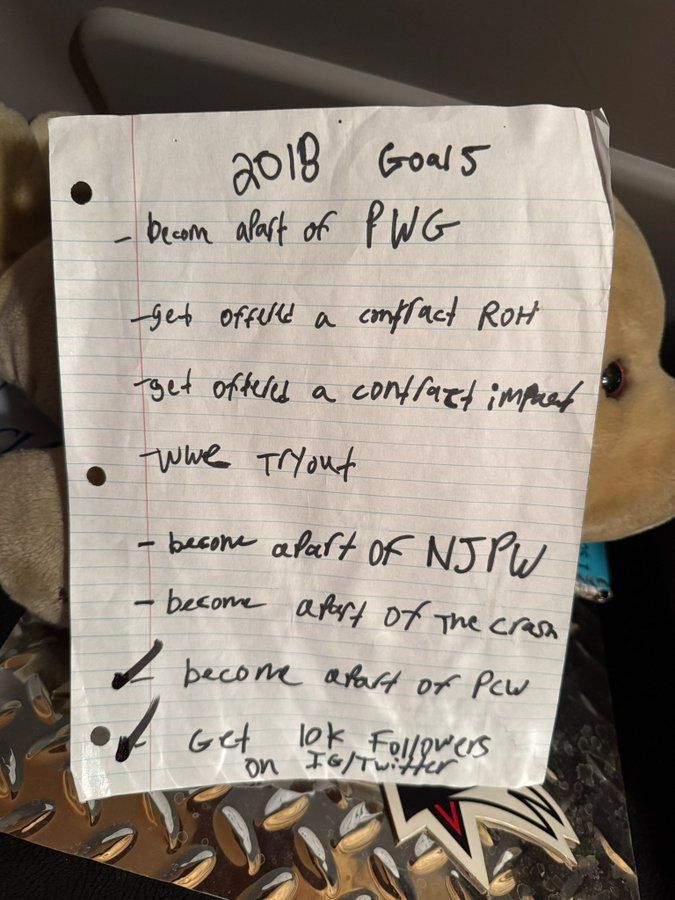 2018 Goals
- becom apart of PWG
- get offered a contract ROH
- get offered a contract impact
- WWE Tryout
- become apart of NJPW
- become apart of The crash
- become apart of PCW
- Get 10k Followers
on IG/Twitter